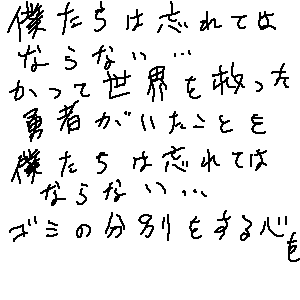 僕たちは忘れては
ならない…
かつて世界を救った
勇者がいたことを
僕たちは忘れては
ならない…
ゴミの分別をする心
を